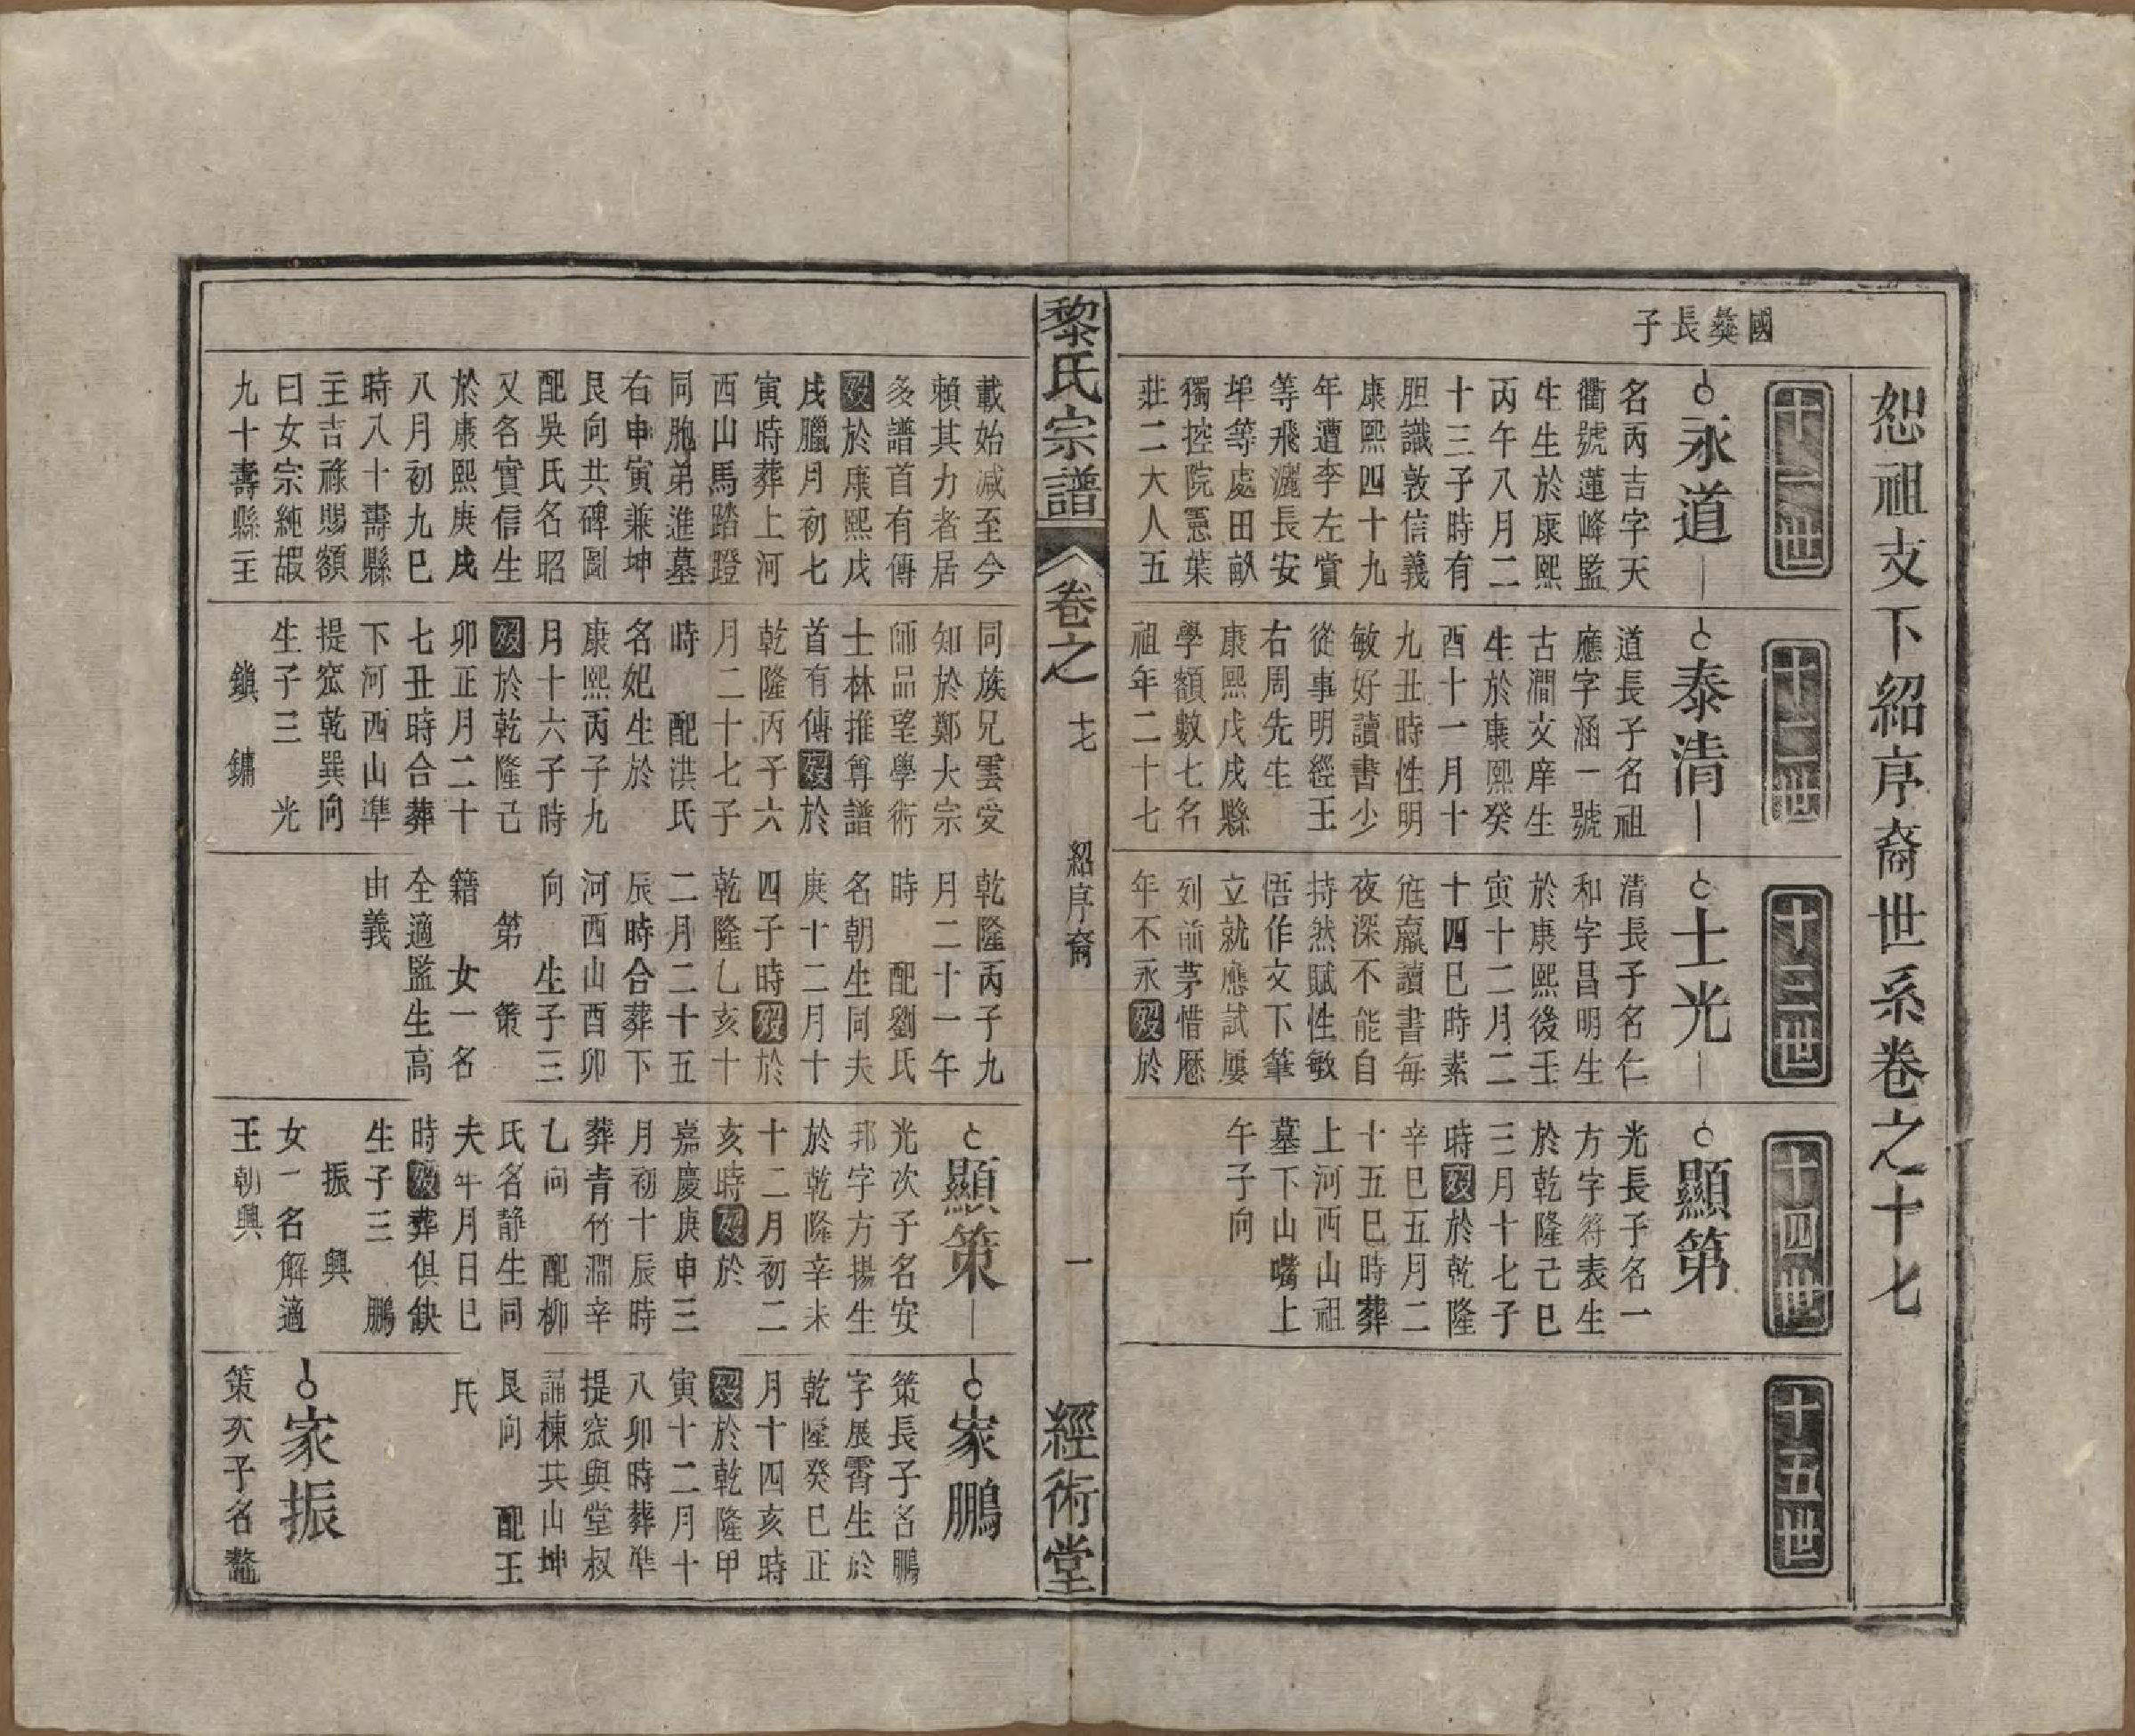 恕祖支下紹序裔世系卷之十七
十一世
十二世
十三世
十四世
十五世
國彝長子
永道
名丙吉字天
衢號蓮峰監
生生於康熙
丙午八月二
十三子時有
胆識敦信義
康熙四十九
年遭李左賞
等飛灑長安
埠等處田畝
獨控院憲葉
莊二大人五
泰清
道長子名祖
應字涵一號
古澗文庠生
生於康熙癸
酉十一月十
九丑時性明
敏好讀書少
從事明經王
右周先生
康熙戊戌縣
學額數七名
祖年二十七
士光
清長子名仁
和字昌明生
於康熙後壬
寅十二月二
十四巳時素
尪羸讀書每
夜深不能自
持然賦性敏
悟作文下筆
立就應試屢
列前茅惜歷
年不永歿於
顯第
光長子名一
方字符表生
於乾隆己巳
三月十七子
時歿於乾隆
辛巳五月二
十五巳時葬
上河西山祖
墓下山嘴上
午子向
黎氏宗譜
卷之
十七
紹序裔
一
經術堂
載始減至今
賴其力者居
多譜首有傳
歿於康熙戊
戌臘月初七
寅時葬上河
西山馬踏蹬
同胞弟進墓
右申寅兼坤
艮向共碑圖
配吳氏名昭
又名實信生
於康熙庚戌
八月初九巳
時八十壽縣
主吉祿賜額
曰女宗純嘏
九十壽縣主
同族兄雲受
知於鄭大宗
師品望學術
士林推尊譜
首有傳歿於
乾隆丙子六
月二十七子
時 配洪氏
名妃生於
康熙丙子九
月十六子時
歿於乾隆己
卯正月二十
七丑時合葬
下河西山準
提窊乾巽向
生子三 光
鎮 鏞
乾隆丙子九
月二十一午
時 配劉氏
名朝生同夫
庚十二月十
四子時歿於
乾隆乙亥十
二月二十五
辰時合葬下
河西山酉卯
向 生子三
第 策
籍 女一名
全適監生高
由義
顯策
光次子名安
邦字方揚生
於乾隆辛未
十二月初二
亥時歿於
嘉慶庚申三
月初十辰時
葬青竹澗辛
乙向 配柳
氏名靜生同
夫年月日巳
時歿葬俱缺
生子三 鵬
振 興
女一名解適
王朝興
家鵬
策長子名鵬
字展霄生於
乾隆癸巳正
月十四亥時
歿於乾隆甲
寅十二月十
八卯時葬準
提窊與堂叔
誦棟共山坤
艮向 配王
氏
家振
策次子名鰲